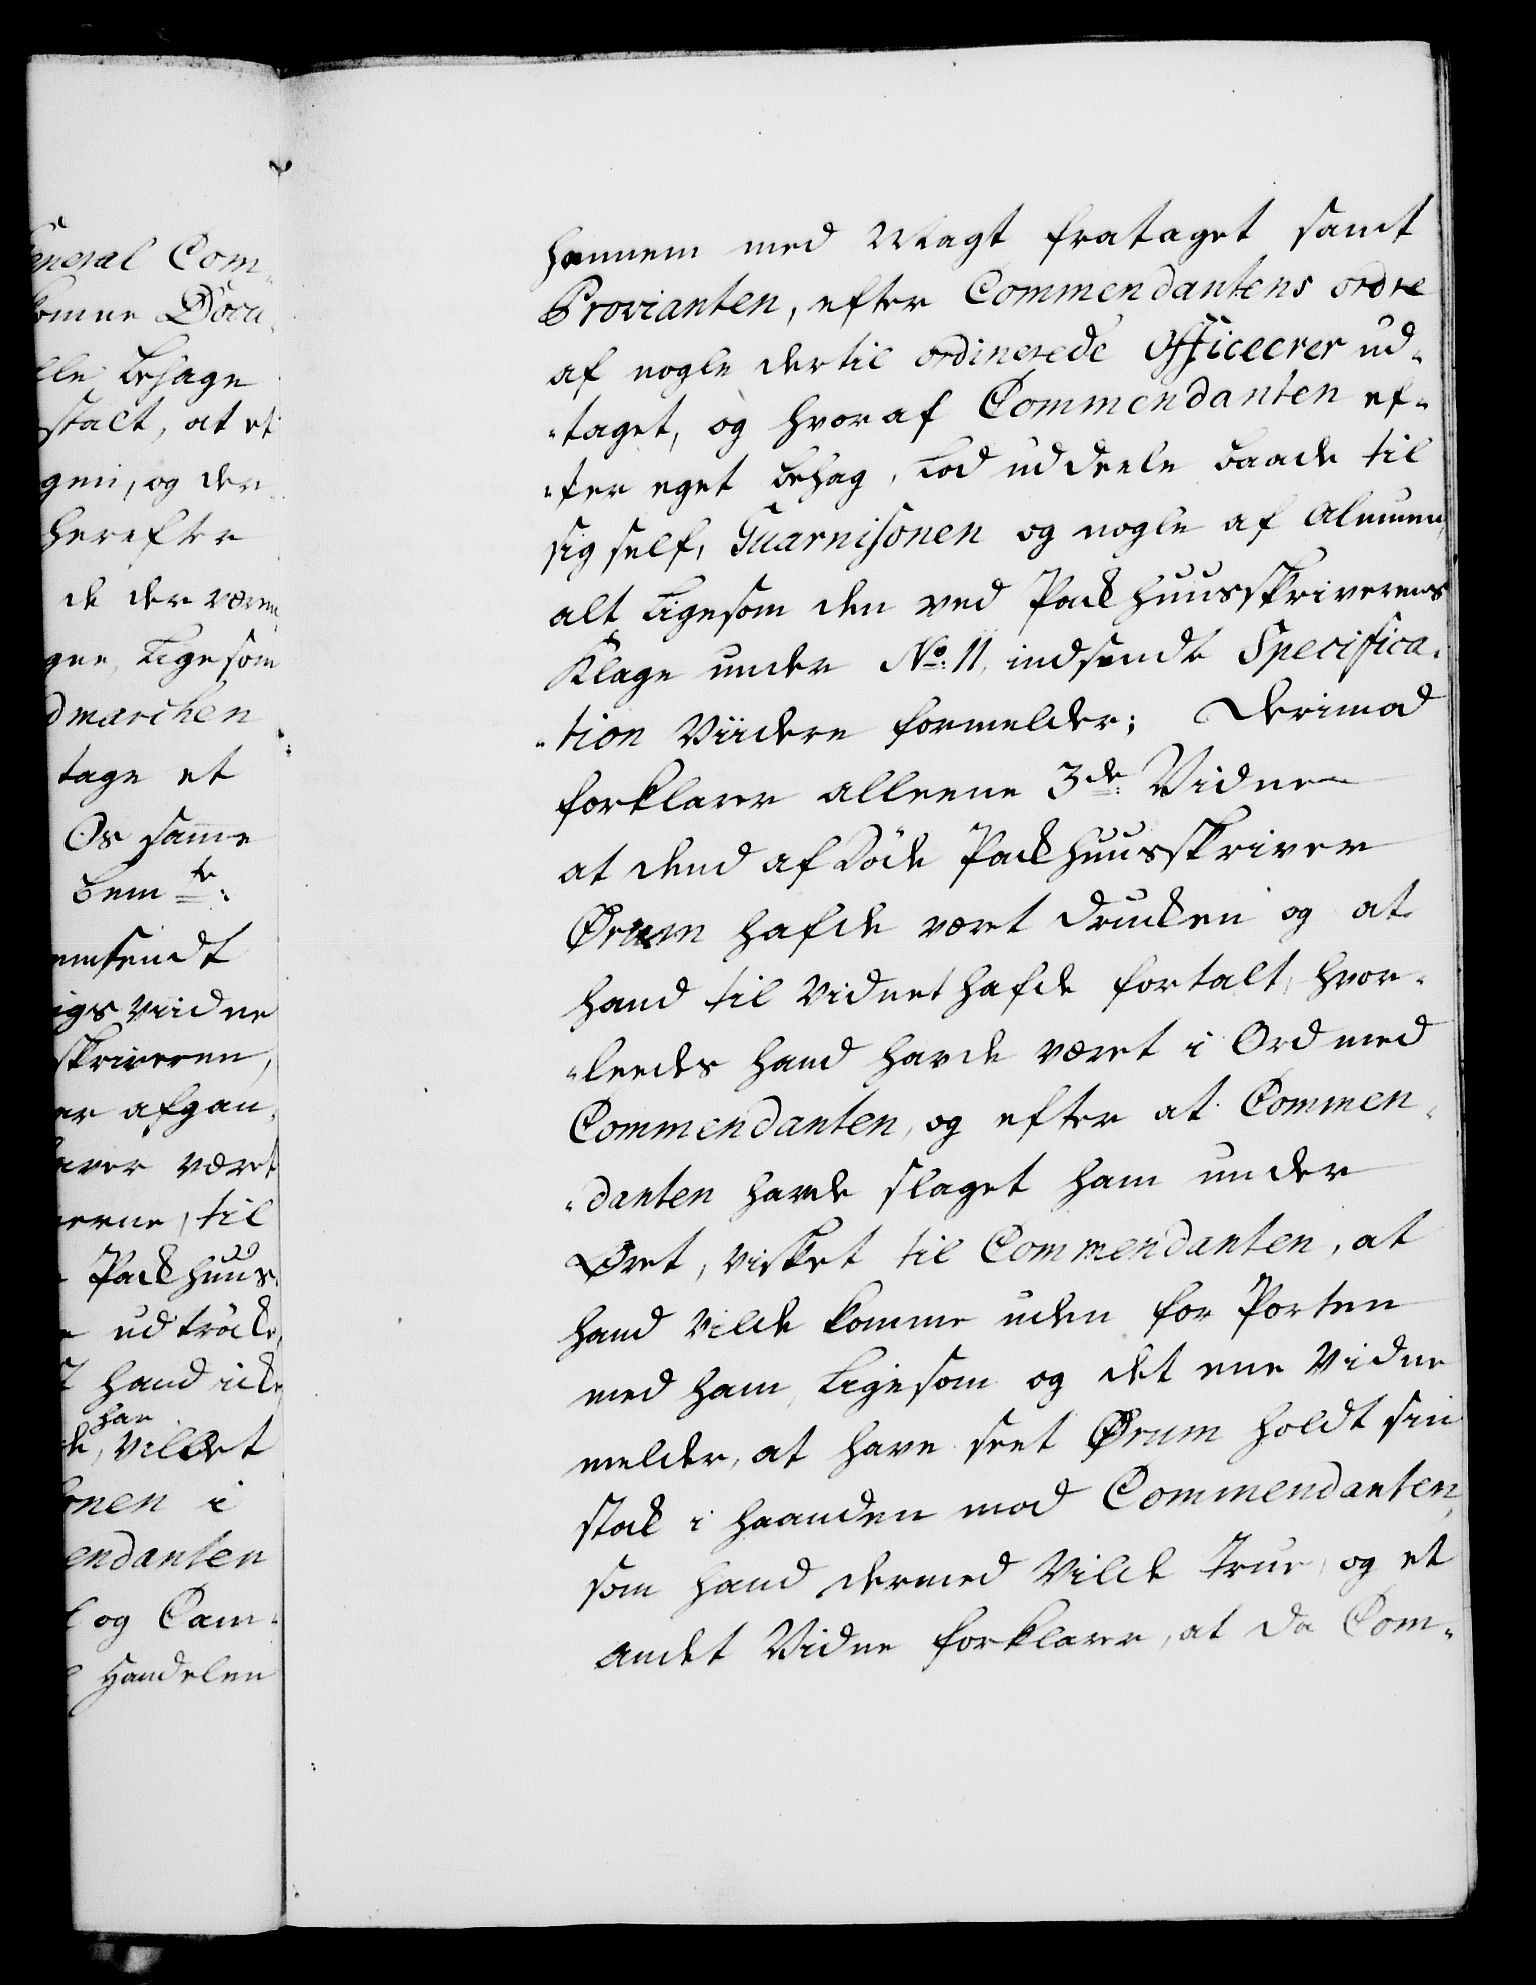 eneral Com-
komne Docu-
lle behage
stalt, at et
gni, og der
herefter
de der være
gne, Ligesom
dmarchen
tage et
Os samme
bemte:
emsendt
igs Viidne
skriveren,
er afgan-
arer været
erne, til
Packhuus-
udtröcke,
hand icke
har
de, villet
onen i
endanten
og Cam-
Handelen
hannem med Magt frataget samt
Provianten, efter Commendantens ordre
af nogle dertil ordinerede Officeerer ud-
-taget, og hvoraf Commendanten ef-
-ter eget behag, Lod uddeele baade til
sig self, Guarnisonen og nogle af Almuen,
alt Ligesom den ved Packhuusskriverens
Klage under No: 11, indsendte Specifica-
-tion Viidere formelder; Derimod
forklarer alleene 3de: Vidner
at dend afdöde Packhuusskriver
Ørum hafde vært drucken og at
hand til Vidnet hafde fortalt, hvor-
-leedes hand havde været i Ord med
Commendanten, og efter at Commen-
-danten havde slaget ham under
Øret, visket til Commendanten, at
hand vilde komme uden for Porten
med ham, Ligesom og det ene Vidne
melder, at have seet Ørum holdt sin
stock i haanden mod Commendanten,
som hand dermed Vilde True, og et
andet Vidne forklarer, at da Com-